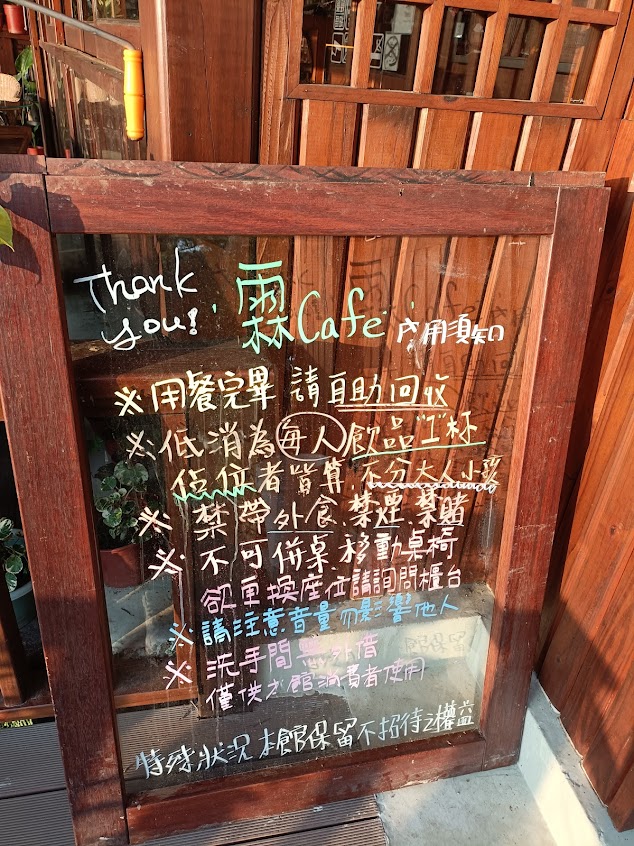 Thank you!
霖Cafe 內用須知
※用餐完畢 請自助回收
※低消為每人飲品"1"杯
佔位者皆算,不分大人小孩
※禁帶外食、禁煙、禁賭
※不可併桌、移動桌椅
欲更換座位請詢問櫃台
※請注意音量勿影響他人
※洗手間恕不外借
僅供本館消費者使用
特殊狀況 本館保留不招待之權益